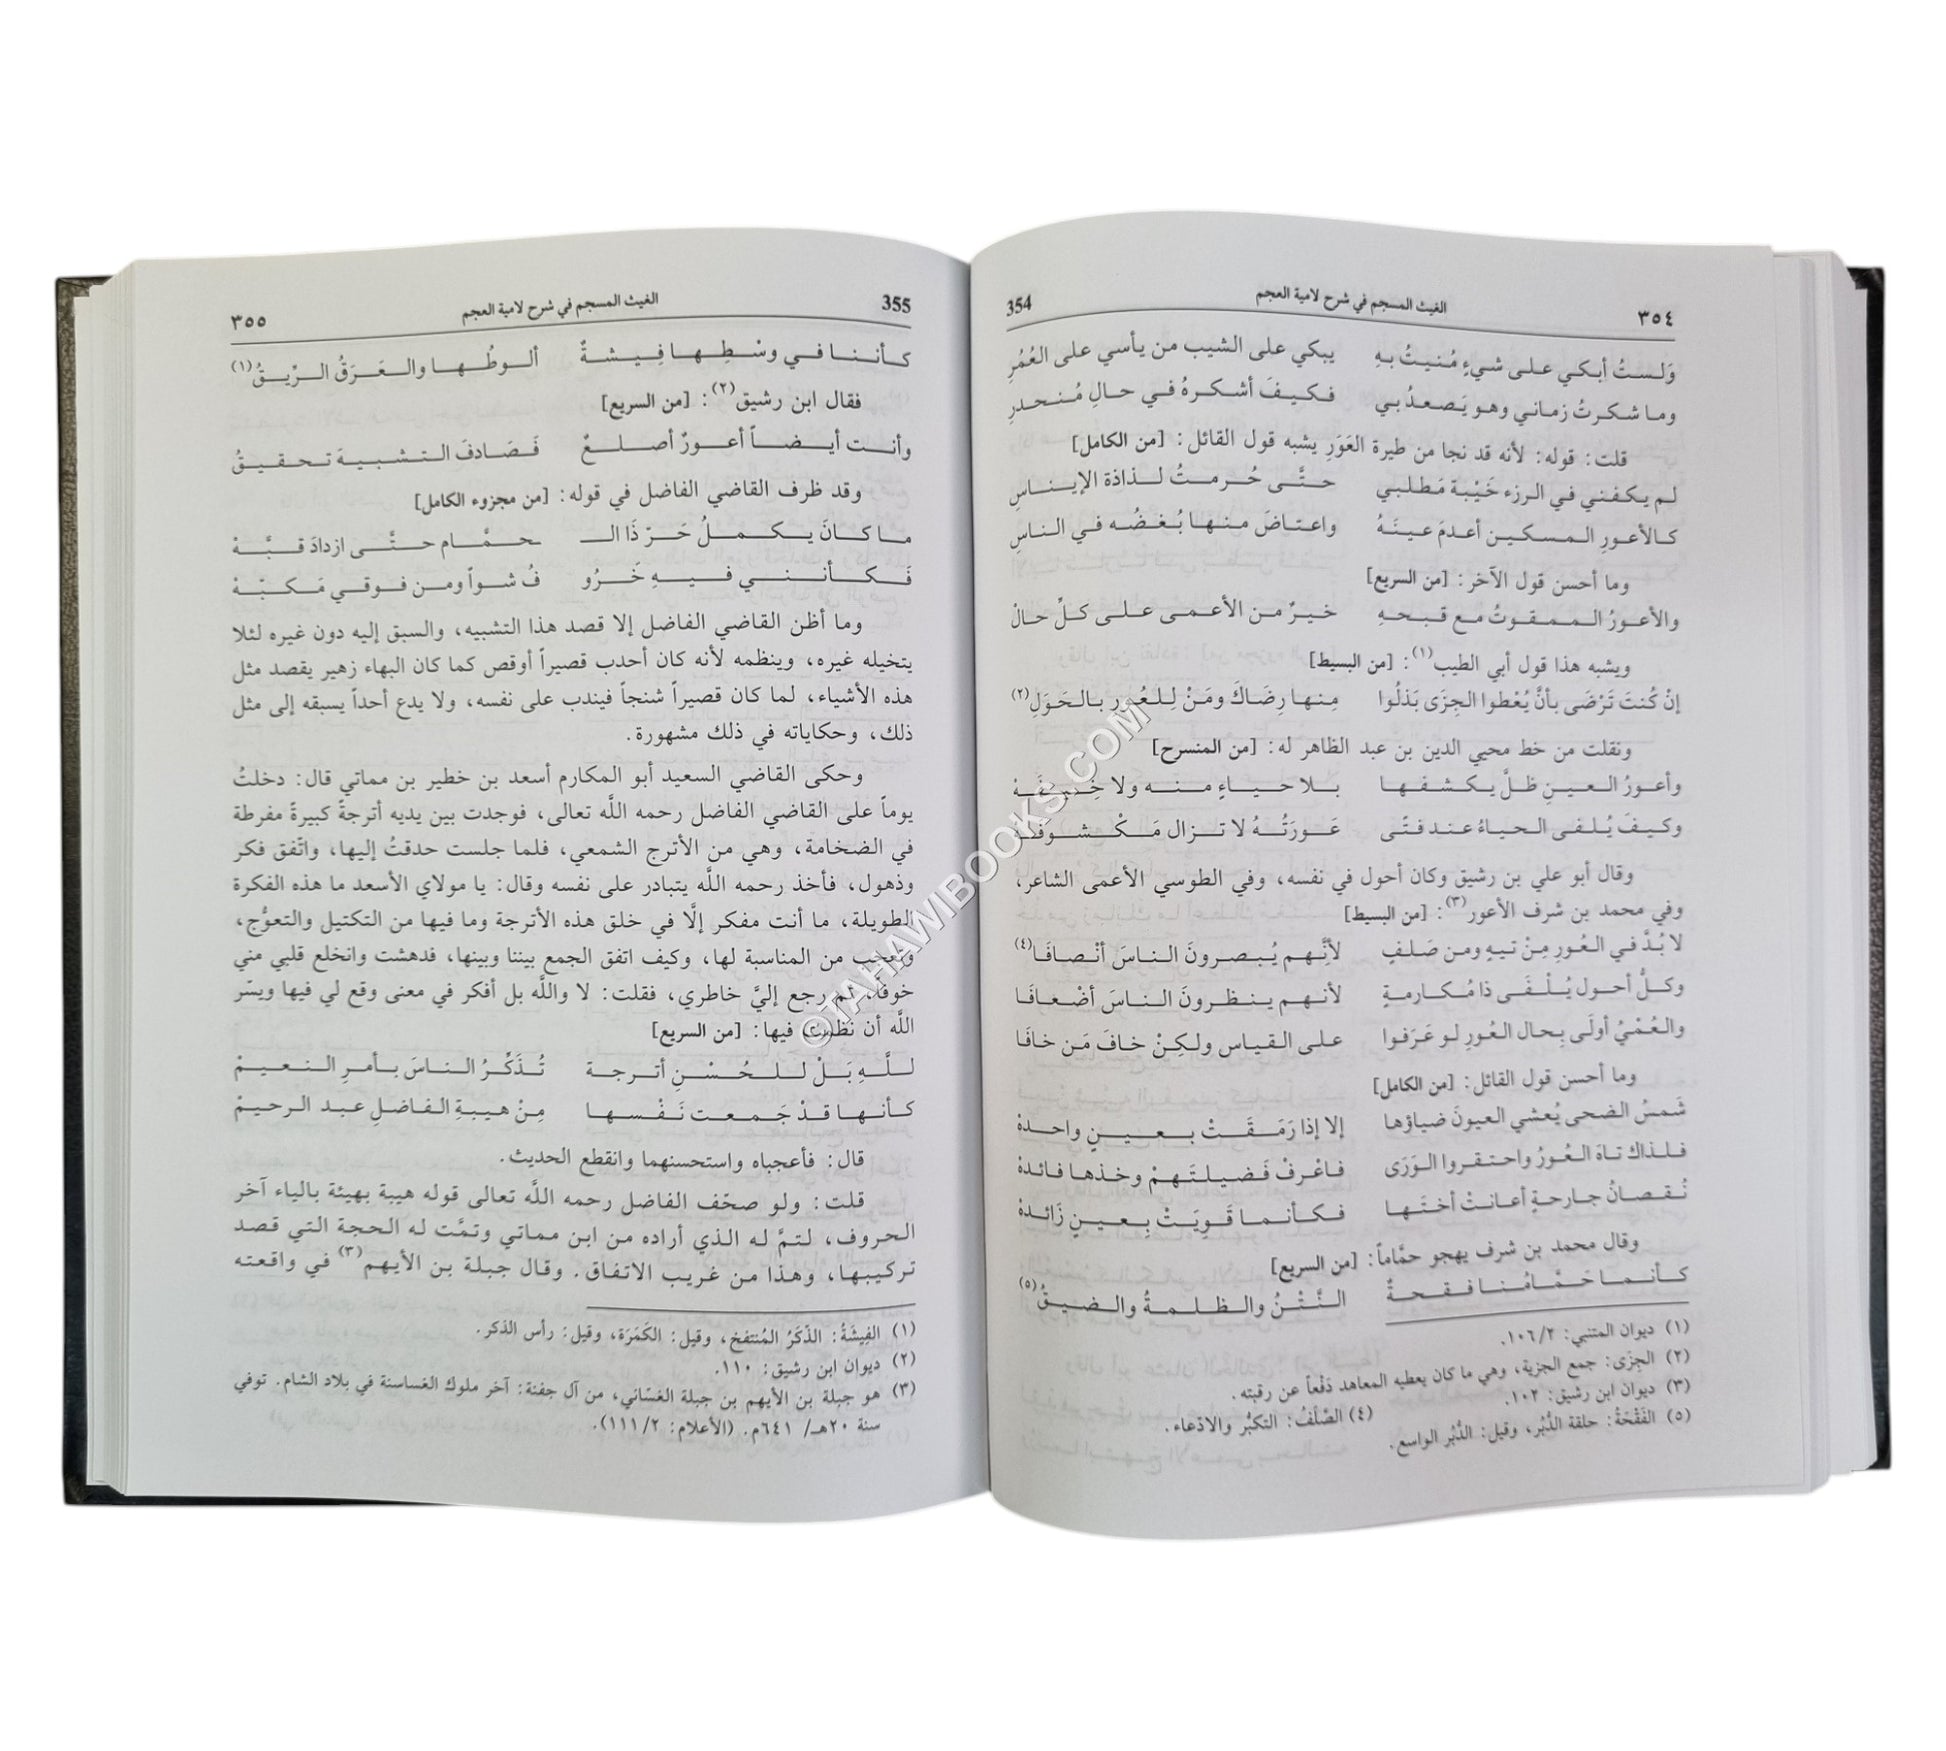 ٣٥٤ الغيث المسجم في شرح لامية العجم 354
وَلستُ أبكي على شيءٍ مُنيتُ بهِ يبكي على الشيب من يأسي على العُمُرِ
وما شكرتُ زماني وهو يَصعدُ بي فكيفَ أشكرهُ في حالِ مُنحدرِ
قلت: قوله: لأنه قد نجا من طيرة العَوَرِ يشبه قول القائل: [من الكامل]
لم يكفني في الرزء خَيْبة مَطلبي حتَّى حُرمتُ لذاذة الإيناسِ
كالأعورِ المسكين أعدمَ عينَهُ واعتاضَ منها بُغضُه في الناسِ
وما أحسن قول الآخر: [من السريع]
والأعورُ الممقوتُ مع قبحهِ خيرٌ من الأعمى على كلِّ حالْ
ويشبه هذا قول أبي الطيب(١): [من البسيط]
إنْ كُنتَ تَرْضَى بأنَّ يُعْطوا الجِزَى بَذلُوا مِنها رِضَاكَ ومَنْ لِلعُورِ بالحَوَلِ(٢)
ونقلت من خط محيي الدين بن عبد الظاهر له: [من المنسرح]
وأعورُ العينِ ظلَّ يكشفها بلا حياءٍ منه ولا خِيفَهْ
وكيفَ يُلفى الحياءُ عند فتًى عَورَتُهُ لا تزال مَكْشوفَهْ
وقال أبو علي بن رشيق وكان أحول في نفسه، وفي الطوسي الأعمى الشاعر،
وفي محمد بن شرف الأعور(٣): [من البسيط]
لا بُدَّ في العُورِ مِنْ تيهٍ ومن صَلفٍ لأنَّهم يُبصرونَ الناسَ أنْصافَا(٤)
وكلُّ أحول يُلْفَى ذا مُكارمةٍ لأنهم ينظرونَ الناسَ أضْعافَا
والعُمْيُ أولَى بِحال العُورِ لو عَرَفوا على القياس ولكِنْ خافَ مَن خافَا
وما أحسن قول القائل: [من الكامل]
شَمسُ الضحى يُعشي العيونَ ضياؤها إلا إذا رَمَقَتْ بعينٍ واحدهْ
فلذاك تاهَ العُورُ واحتقروا الوَرَى فاعْرفْ فَضيلتَهمْ وخذها فائدهْ
نُقصانُ جارحةٍ أعانتْ أختَها فكأنما قَوِيَتْ بِعينٍ زَائدهْ
وقال محمد بن شرف يهجو حمَّاماً: [من السريع]
كأنما حَمَّامُنا فقحةٌ النَّتْنُ والظلمةُ والضيقُ(٥)
(١) ديوان المتنبي: ١٠٦/٢.
(٢) الجِزَى: جمع الجزية، وهي ما كان يعطيه المعاهد دَفْعاً عن رقبته.
(٣) ديوان ابن رشيق: ١٠٢. (٤) الصَّلَفُ: التكبُّر والادّعاء.
(٥) الفَقْحَةُ: حلقة الدُّبُر، وقيل: الدُّبُر الواسع.
355 الغيث المسجم في شرح لامية العجم ٣٥٥
كأننا في وسْطِها فِيشةٌ ألوطُها والعَرَقُ الرِّيقُ(١)
فقال ابن رشيق(٢): [من السريع]
وأنت أيضاً أعورٌ أصلعٌ فَصَادفَ التشبيهَ تحقيقُ
وقد ظرف القاضي الفاضل في قوله: [من مجزوء الكامل]
ما كانَ يكملُ حَرّ ذَا الـ ـحمَّام حتَّى ازدادَ قبَّهْ
فَكأنني فيهِ خَرُو فُ شواً ومن فوقي مَكبّهْ
وما أظن القاضي الفاضل إلا قصد هذا التشبيه، والسبق إليه دون غيره لئلا
يتخيله غيره، وينظمه لأنه كان أحدب قصيراً أوقص كما كان البهاء زهير يقصد مثل
هذه الأشياء، لما كان قصيراً شنجاً فيندب على نفسه، ولا يدع أحداً يسبقه إلى مثل
ذلك، وحكاياته في ذلك مشهورة.
وحكى القاضي السعيد أبو المكارم أسعد بن خطير بن مماتي قال: دخلتُ
يوماً على القاضي الفاضل رحمه اللَّه تعالى، فوجدت بين يديه أترجةً كبيرةً مفرطة
في الضخامة، وهي من الأترج الشمعي، فلما جلست حدقتُ إليها، واتّفق فكر
وذهول، فأخذ رحمه اللَّه يتبادر على نفسه وقال: يا مولاي الأسعد ما هذه الفكرة
الطويلة، ما أنت مفكر إلَّا في خلق هذه الأترجة وما فيها من التكتيل والتعوُّج،
وتعجب من المناسبة لها، وكيف اتفق الجمع بيننا وبينها، فدهشت وانخلع قلبي مني
خوفاً، ثم رجع إليَّ خاطري، فقلت: لا واللَّه بل أفكر في معنى وقع لي فيها ويسّر
اللَّه أن نظمت فيها: [من السريع]
للَّهِ بَلْ للحُسْنِ أترجة تُذَكِّرُ الناسَ بأمرِ النعيمْ
كأنها قدْ جَمعت نَفْسها مِنْ هيبةِ الفاضلِ عبد الرحيمْ
قال: فأعجباه واستحسنهما وانقطع الحديث.
قلت: ولو صحّف الفاضل رحمه اللَّه تعالى قوله هيبة بهيئة بالياء آخر
الحروف، لتمَّ له الذي أراده من ابن مماتي وتمَّت له الحجة التي قصد
تركيبها، وهذا من غريب الاتفاق. وقال جبلة بن الأيهم(٣) في واقعته
(١) الفِيشَةُ: الذَّكَرُ المُنتفخ، وقيل: الكَمَرَة، وقيل: رأس الذكر.
(٢) ديوان ابن رشيق: ١١٠.
(٣) هو جبلة بن الأيهم بن جبلة الغسّاني، من آل جفنة: آخر ملوك الغساسنة في بلاد الشام. توفي
سنة ٢٠هـ/ ٦٤١م. (الأعلام: ١١١/٢).
©TAHAWIBOOKS.COM